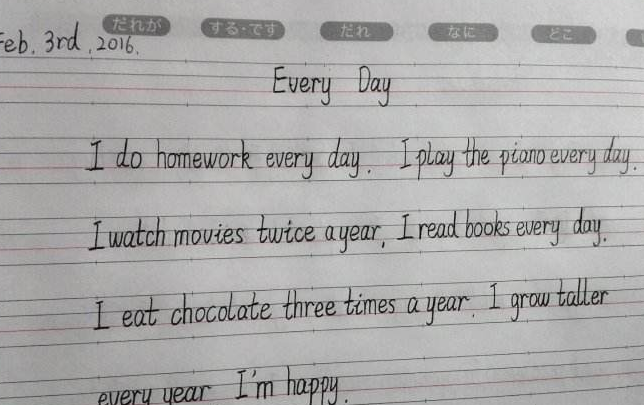 だれが する・です だれ なに どこ
Feb. 3rd, 2016.
Every Day
I do homework every day. I play the piano every day.
I watch movies twice a year, I read books every day.
I eat chocolate three times a year. I grow taller
every year I'm happy.